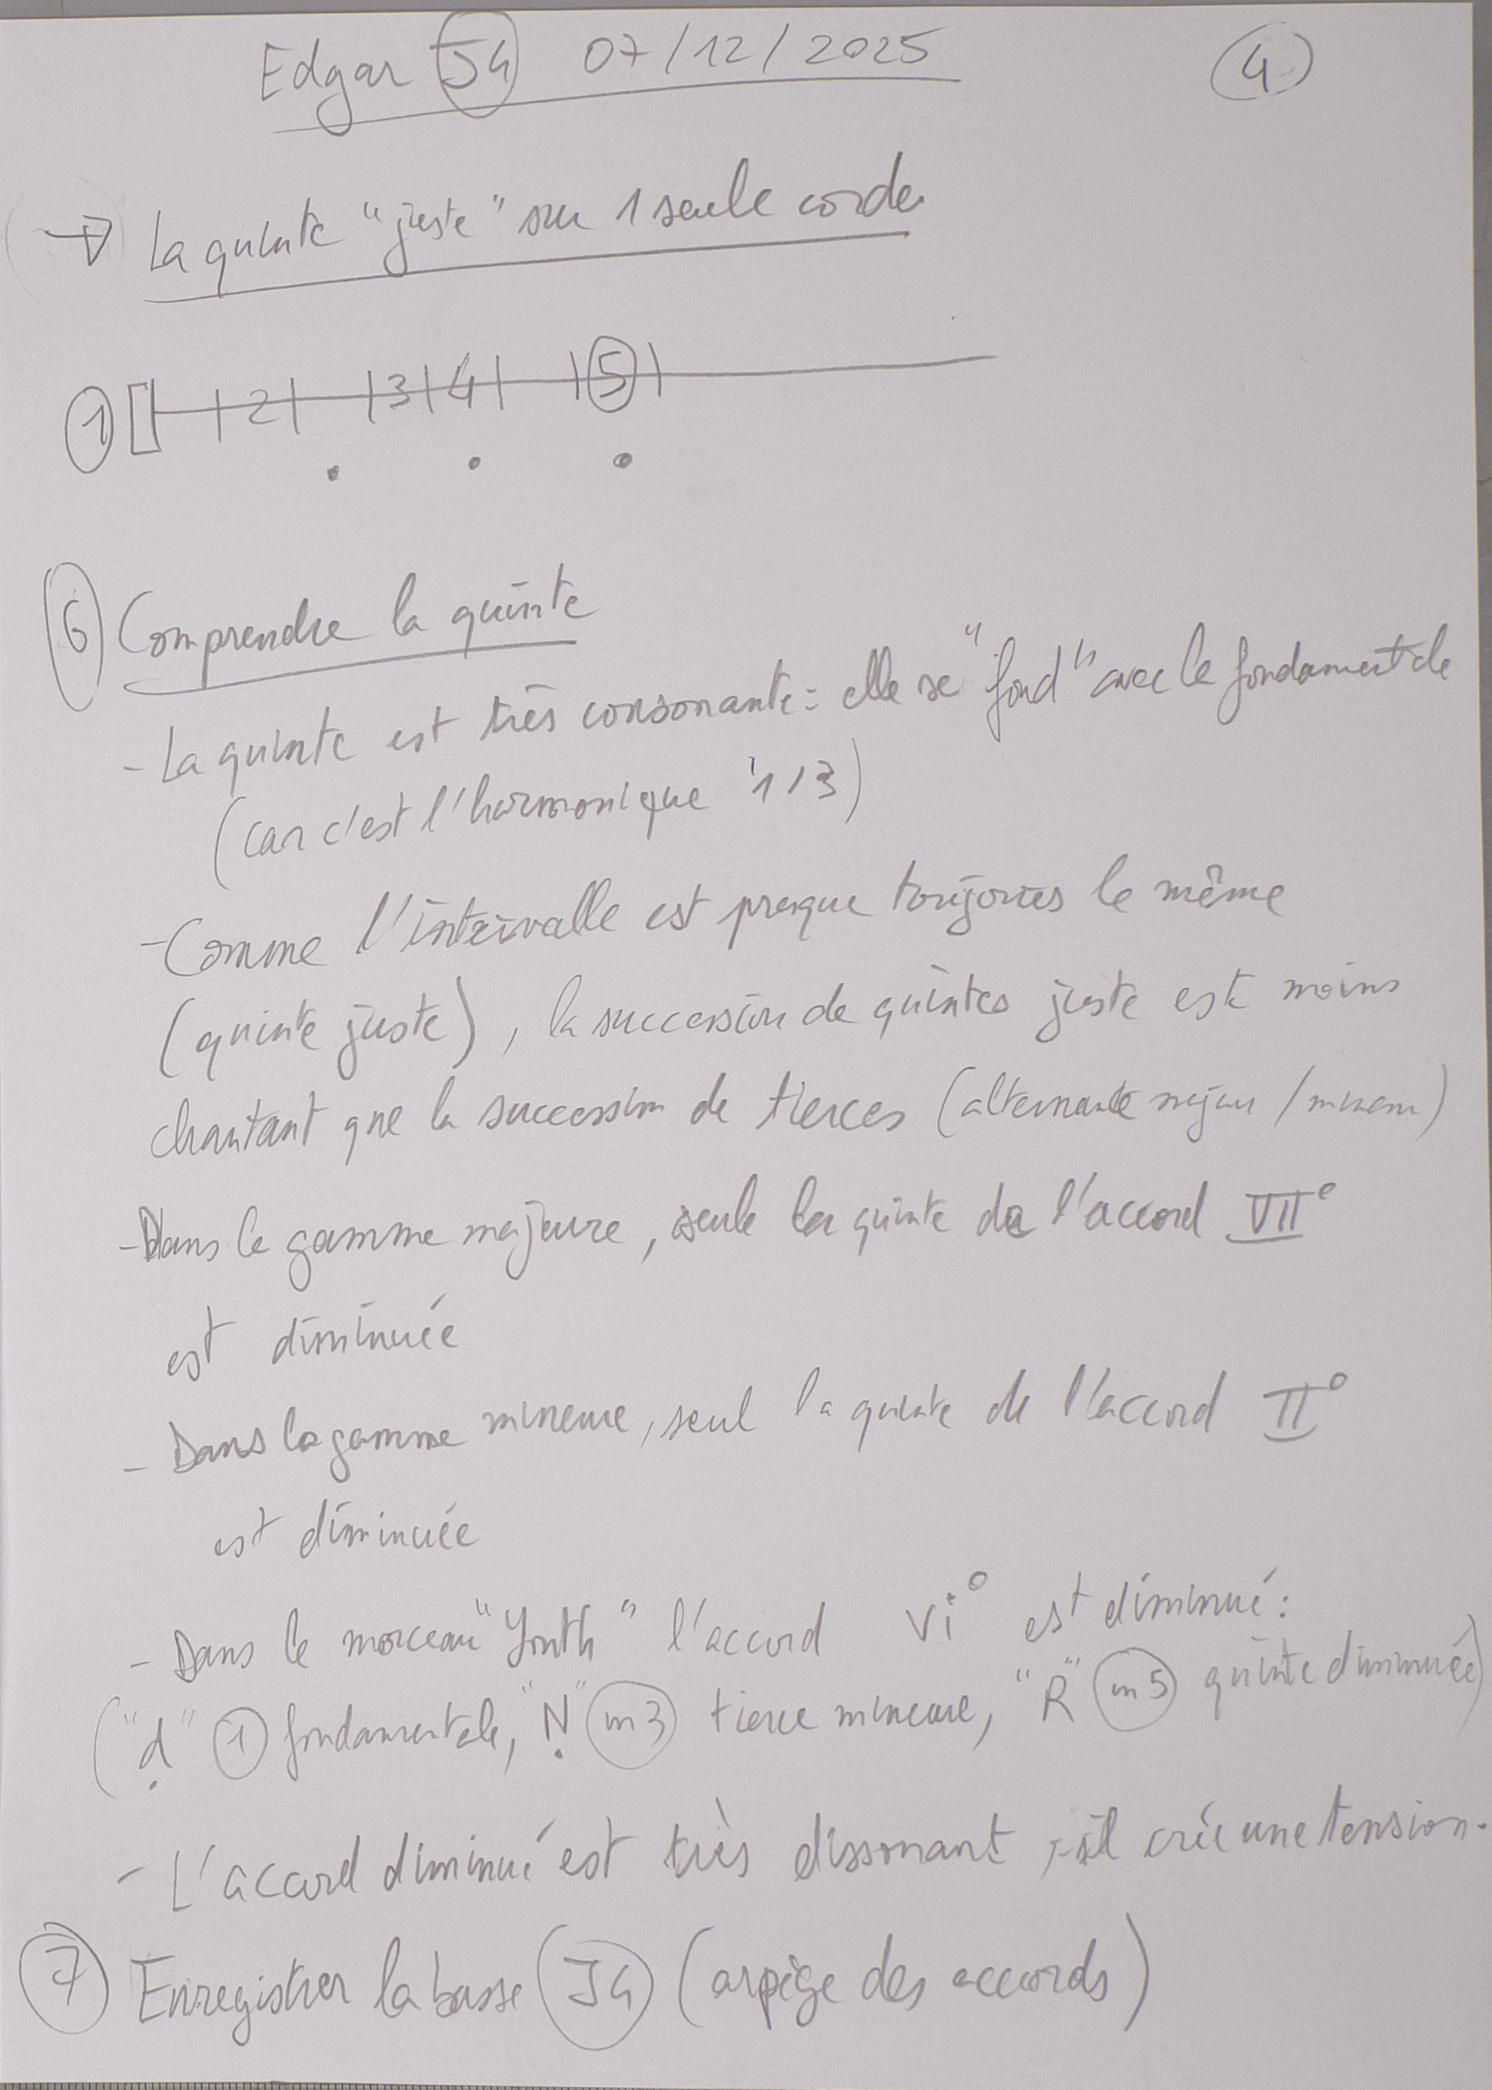 Edgar J4 07/12/2025 4
→ La quinte "juste" sur 1 seule corde
1 [ | 2 | | 3 | 4 | | 5 |
6 Comprendre la quinte
- La quinte est très consonante : elle se "fond" avec la fondamentale
(car c'est l'harmonique 1/3)
- Comme l'intervalle est presque toujours le même
(quinte juste), la succession de quintes juste est moins
chantant que la succession de tierces (alternance majeur / mineur)
- Dans la gamme majeure, seule la quinte de l'accord VII°
est diminuée
- Dans la gamme mineure, seul la quinte de l'accord II°
est diminuée
- Dans le morceau "Youth" l'accord vi° est diminué :
("d" 1 fondamentale, "N" m3 tierce mineure, "R" m5 quinte diminuée)
- L'accord diminué est très dissonant, il crée une tension.
7 Enregistrer la basse J4 (arpège des accords)